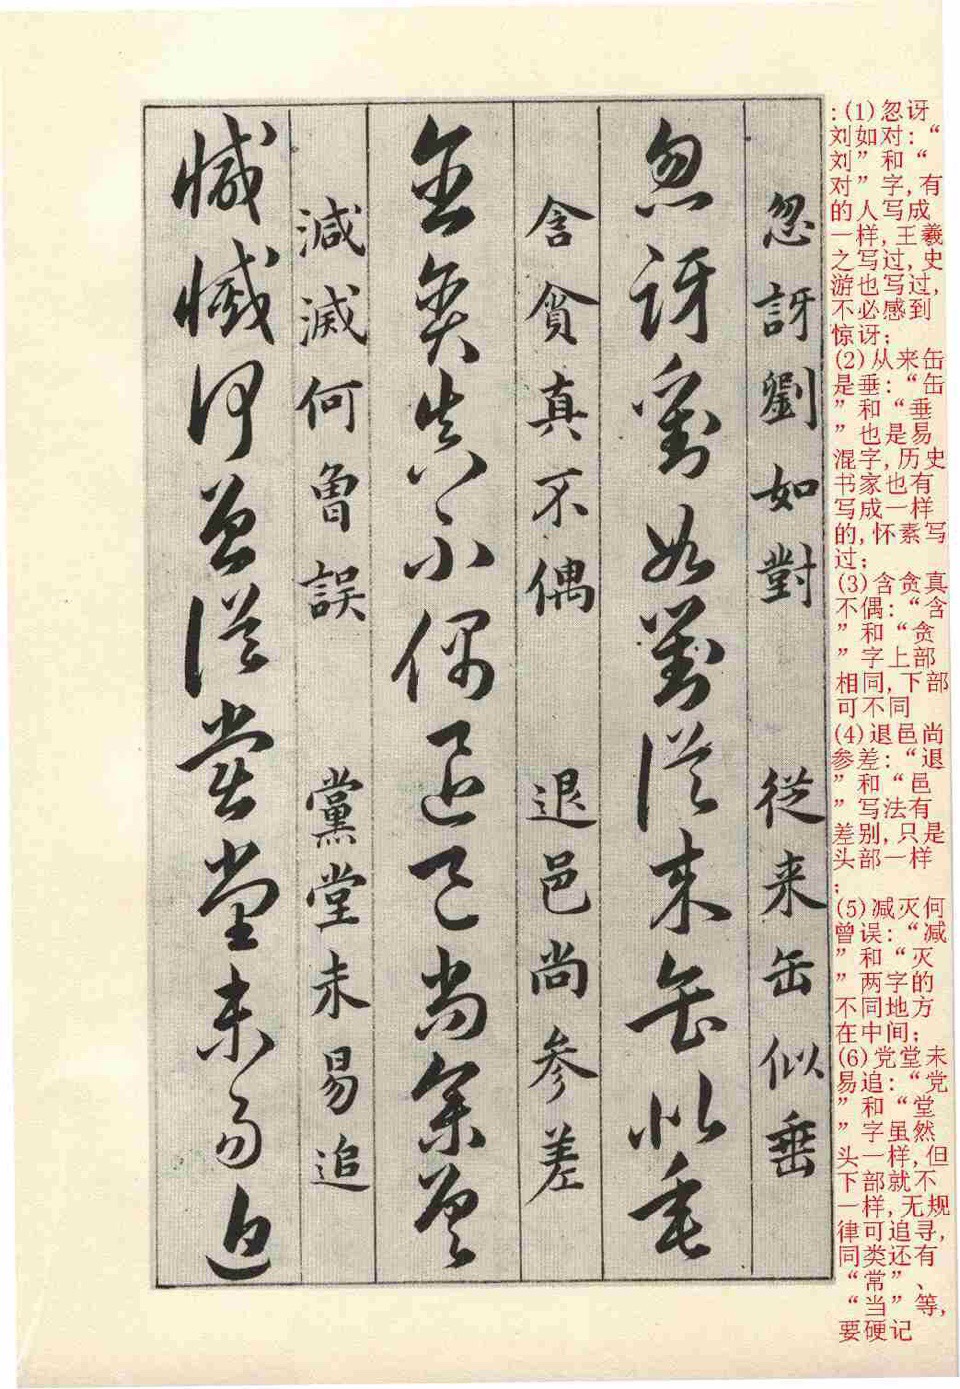 :(1)忽讶
刘如对:“
刘”和“
对”字,有
的人写成
一样,王羲
之写过,史
游也写过,
不必感到
惊讶;
(2)从来缶
是垂:“缶
”和“垂
”也是易
混字,历史
书家也有
写成一样
的,怀素写
过;
(3)含贪真
不偶:“含
”和“贪
”字上部
相同,下部
可不同
(4)退邑尚
参差:“退
”和“邑
”写法有
差别,只是
头部一样
;
(5)减灭何
曾误:“减
”和“灭
”两字的
不同地方
在中间;
(6)党堂未
易追:“党
”和“堂
”字虽然
头一样,但
下部就不
一样,无规
律可追寻,
同类还有
“常”、
“当”等,
要硬记
忽訝劉如對 從来缶似垂
忽訝劉如對從来缶似垂
含貪真不偶 退邑尚参差
含貪真不偶退邑尚参差
減滅何曾誤 黨堂未易追
減滅何曾誤黨堂未易追